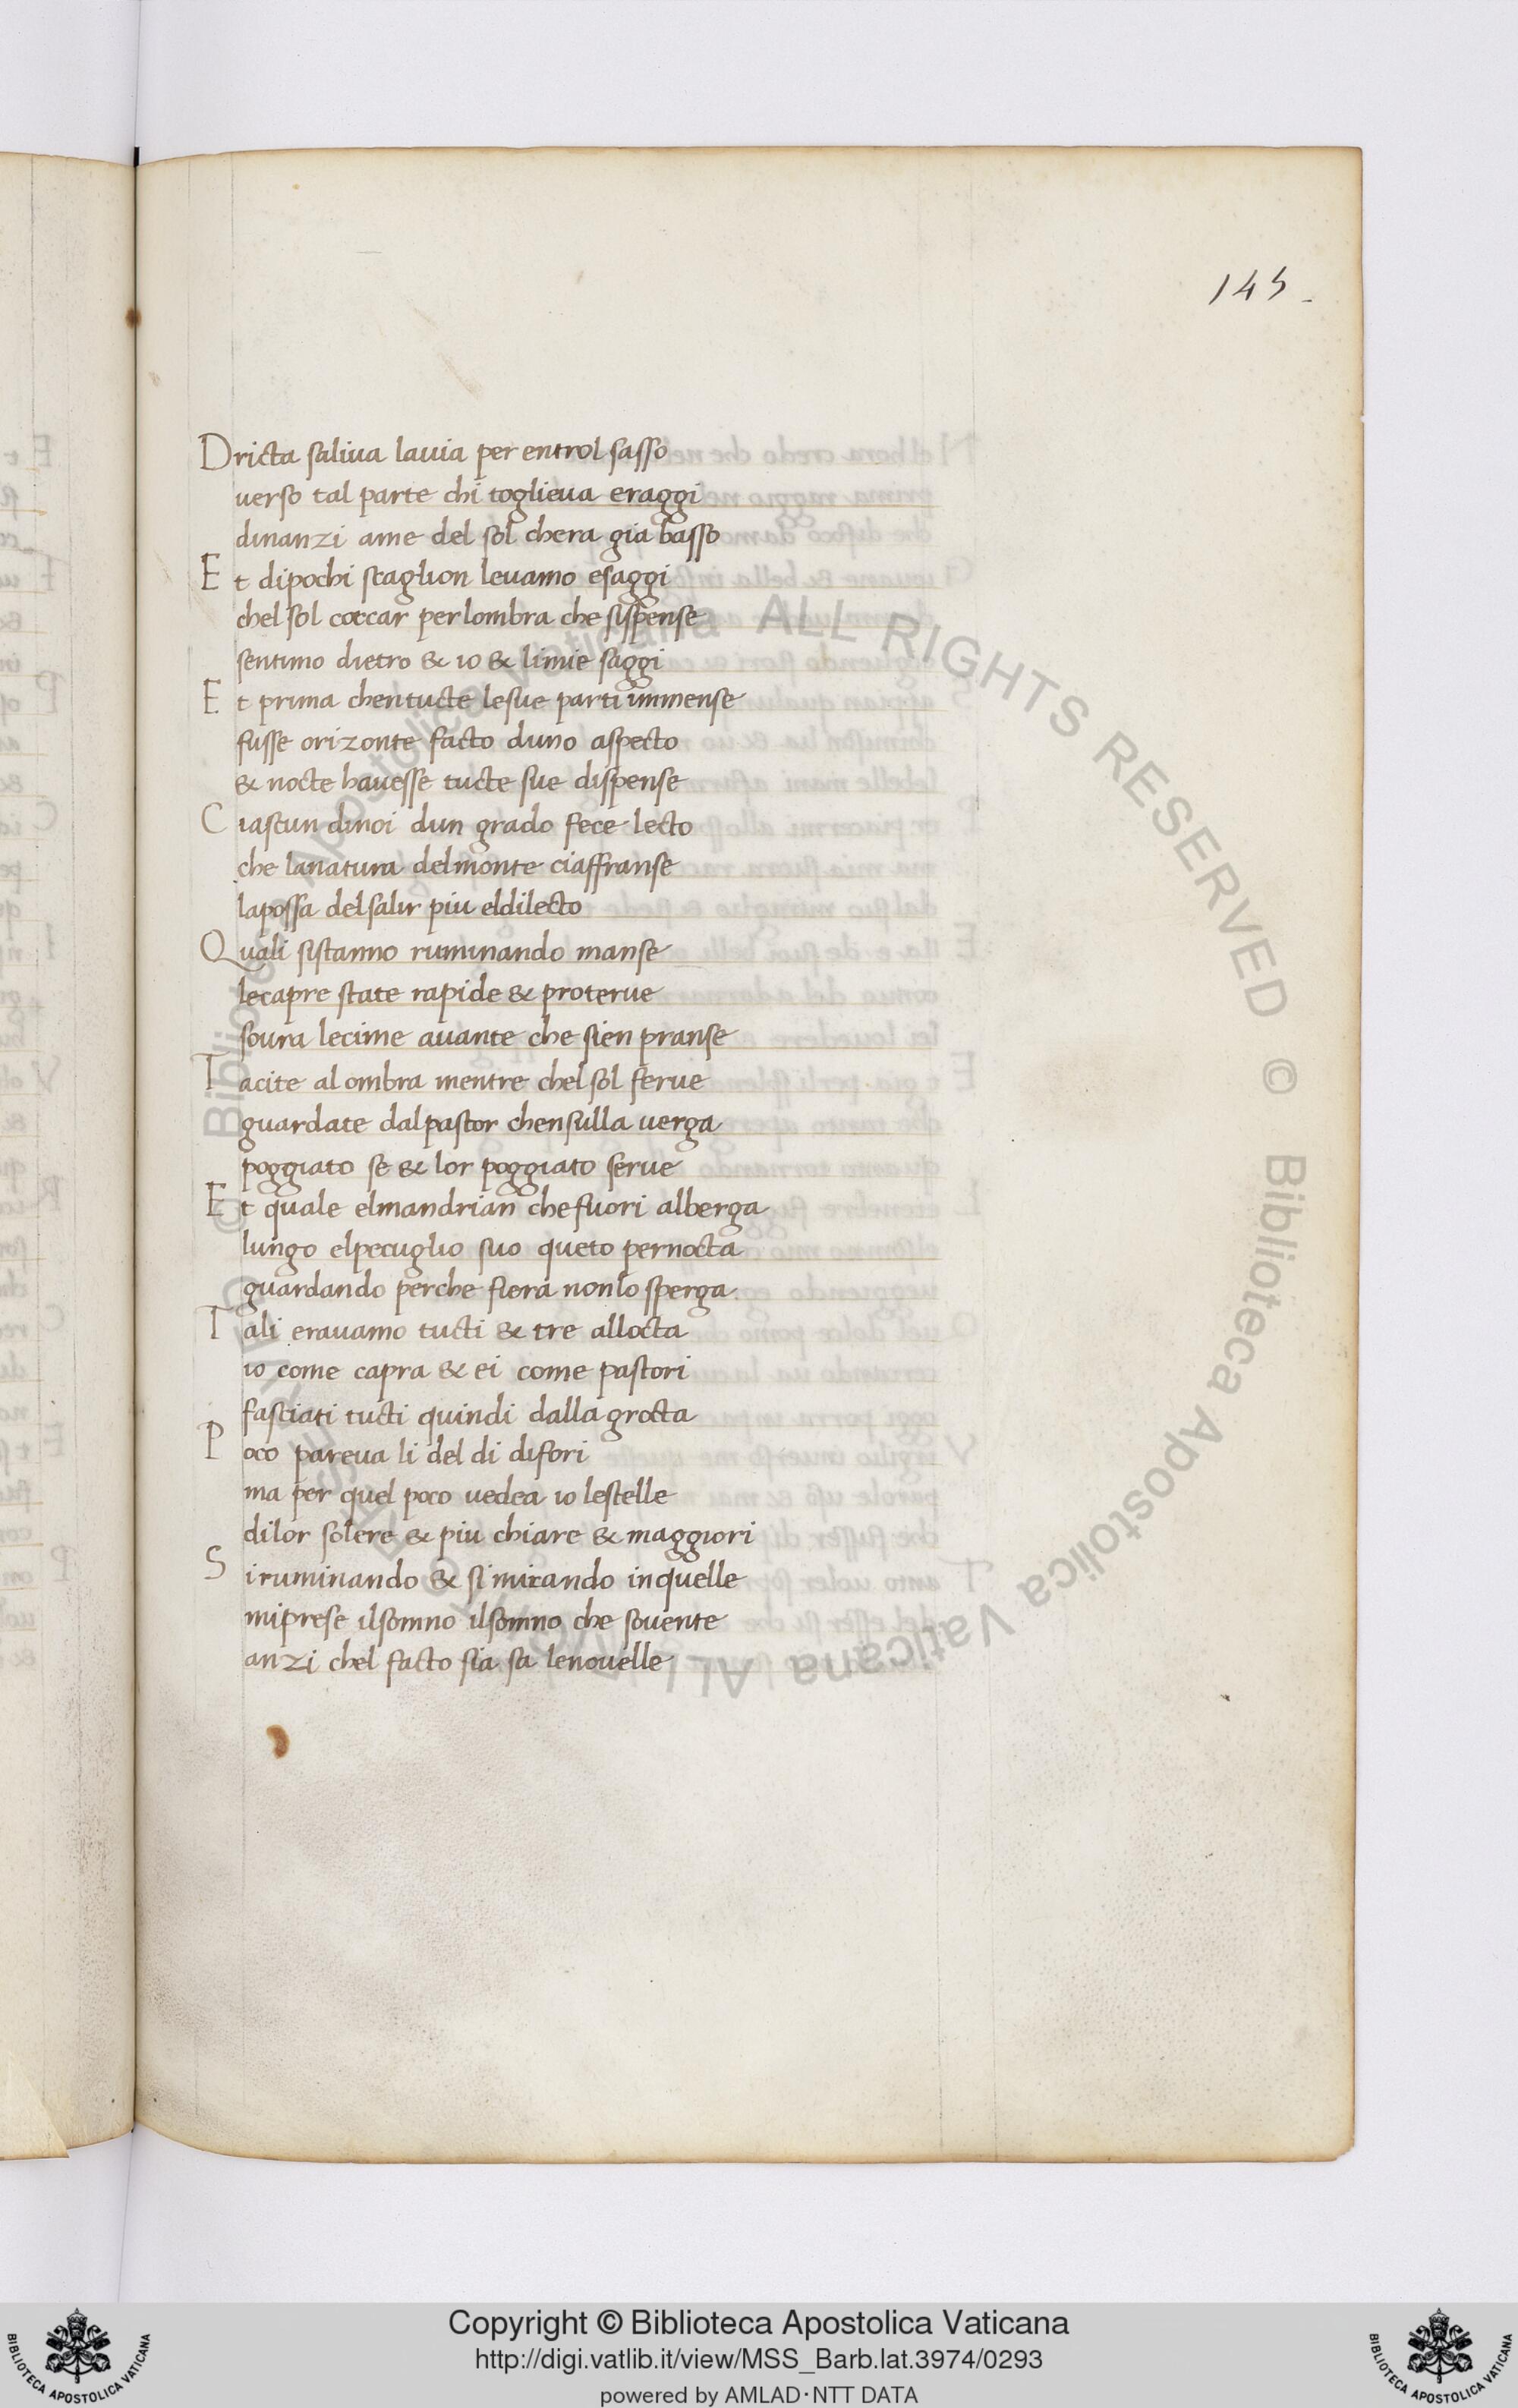 145.
Dricta saliua lauia per entrol sasso
uerso tal parte chi toglieua eraggi
dinanzi ame del sol chera gia basso
Et dipochi scaglion leuamo esaggi
chel sol coccar perlombra che sispense
sentimo dietro & io & limie saggi
Et prima chentucte lesue parti immense
fusse orizonte facto duno aspecto
& nocte hauesse tucte sue dispense
Ciascun dinoi dun grado fece lecto
che lanatura delmonte ciaffranse
lapossa delsalir piu eldilecto
Quali sistanno ruminando manse
lecapre state rapide & proterue
soura lecime auante che sien pranse
Tacite al ombra mentre chel sol ferue
guardate dalpastor chensulla uerga
poggiato se & lor poggiato serue
Et quale elmandrian chefuori alberga
lungo elpecuglio suo queto pernocta
guardando perche fiera nonlo sperga
Tali erauamo tucti & tre allocta
io come capra & ei come pastori
fasciati tucti quindi dalla grocta
Poco pareua li del di difori
ma per quel poco uedea io lestelle
dilor solere & piu chiare & maggiori
Si ruminando & si mirando inquelle
miprese ilsomno ilsomno che souente
anzi chel facto sia sa lenouelle
© Biblioteca Apostolica Vaticana ALL RIGHTS RESERVED © Biblioteca Apostolica Vaticana ALL RIGHTS RESERVED
Copyright © Biblioteca Apostolica Vaticana
http://digi.vatlib.it/view/MSS_Barb.lat.3974/0293
powered by AMLAD·NTT DATA
BIBLIOTECA APOSTOLICA VATICANA
BIBLIOTECA APOSTOLICA VATICANA